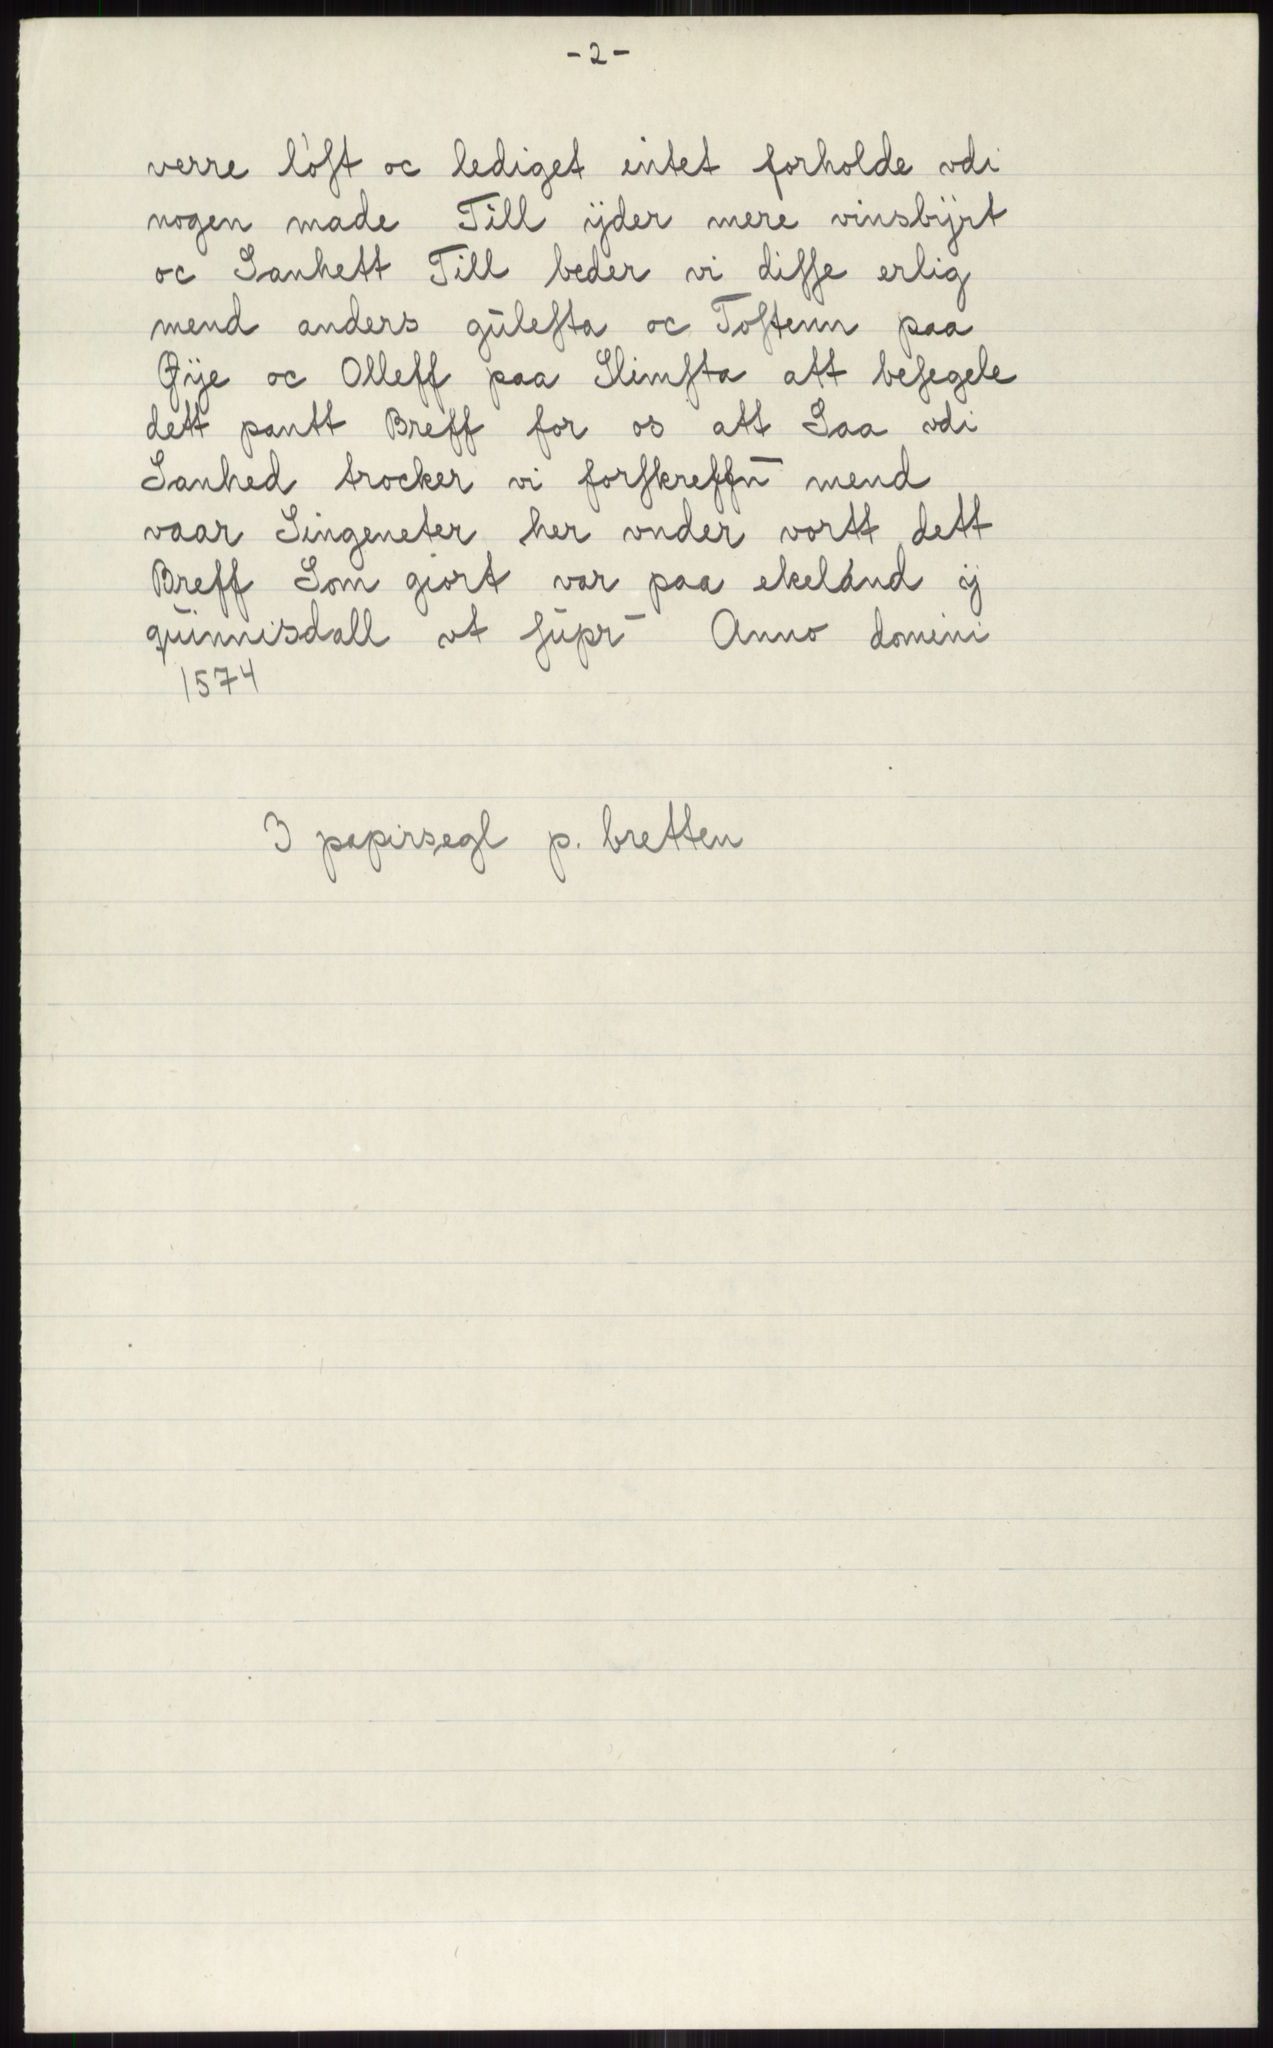 - 2 -
verre löst oc lediget eintet forholde vdi
nogen made Till ÿder mere vinsbÿrt
oc Sanhett Till beder vi disse erlig
mend anders gūlesta oc Tostenn paa
Øÿe oc Olleff paa Slimsta att besegele
dett pantt Breff for os att Saa vdi
Sanhed trocker vi forskreffn̄ mend
vaar Singeneter her vnder vortt dett
Breff Som giort var paa ekeland ÿ
qūinnisdall vt supr̄ Anno domini
1574
3 papirsegl p. bretten